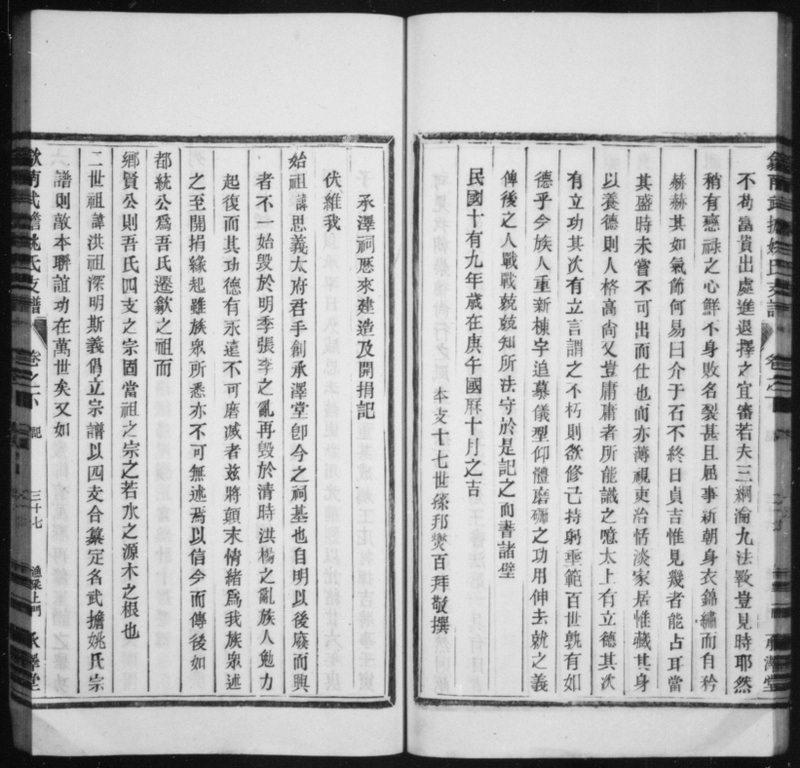 不苟富貴出處進退擇之宜審若夫三綱淪九法斁豈見時耶然
稍有戀祿之心鮮不身敗名裂甚且屈事新朝身衣錦繡而自矜
赫赫其如氣節何易曰介于石不終日貞吉惟見幾者能占耳當
其盛時未嘗不可出而仕也而亦薄視吏治恬淡家居惟藏其身
以養德則人格高尙又豈庸庸者所能識之噫太上有立德其次
有立功其次有立言謂之不朽則欲修己持躬垂範百世孰有如
德乎今族人重新棟宇追慕儀型仰體磨礪之功用伸去就之義
俾後之人戰戰兢兢知所法守於是記之而書諸壁
民國十有九年歲在庚午國曆十月之吉
本支十七世孫邦燮百拜敬撰
承澤祠歷來建造及開捐記
伏維我
始祖諱思義太府君手創承澤堂卽今之祠基也自明以後廢而興
者不一始毀於明季張李之亂再毀於清時洪楊之亂族人勉力
起復而其功德有永遠不可磨滅者玆將顛末情緒爲我族衆述
之至開捐緣起雖族衆所悉亦不可無述焉以信今而傳後如
都統公爲吾氏遷歙之祖而
鄉賢公則吾氏四支之宗固當祖之宗之若水之源木之根也
二世祖諱洪祖深明斯義倡立宗譜以四支合纂定名武擔姚氏宗
譜則敵本聯誼功在萬世矣又如
歙南武擔姚氏支譜 卷之下 記 三十七 漁梁上門 承澤堂